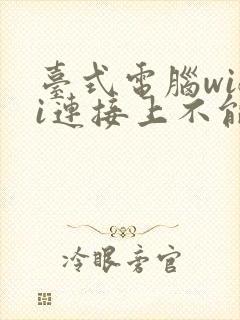 臺式電腦wif
i連接上不能
冷眼旁官